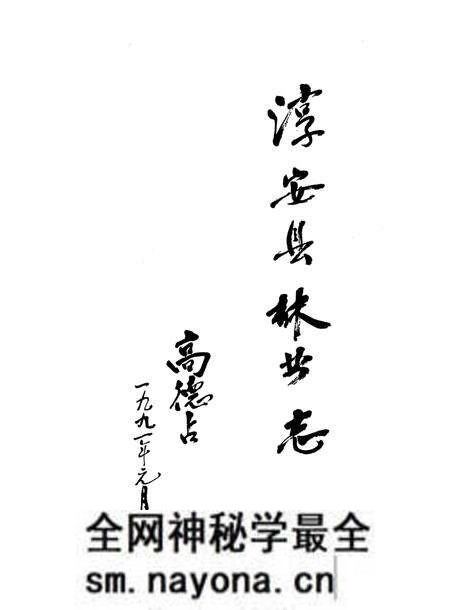 淳安县林业志
高德占
一九九一年元月
全网神秘学最全
sm.nayona.cn